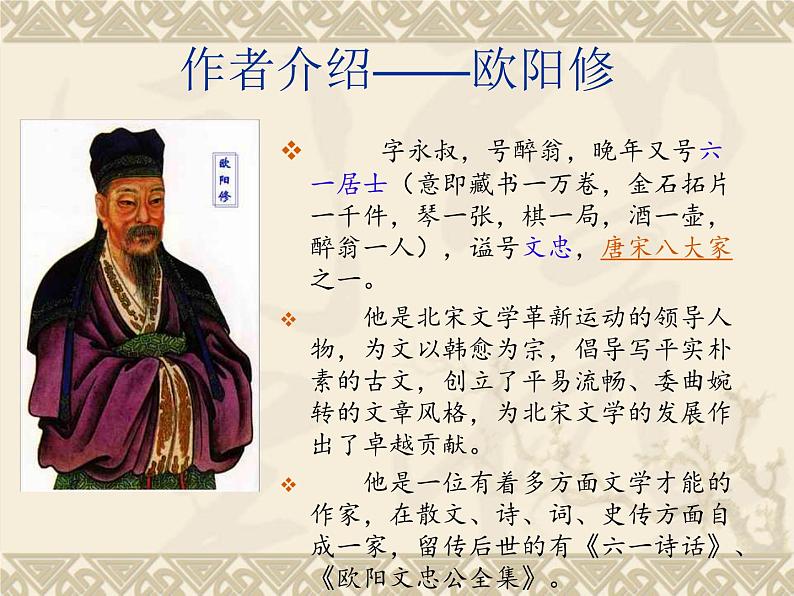 作者介绍——欧阳修
欧阳修
字永叔，号醉翁，晚年又号六
一居士（意即藏书一万卷，金石拓片
一千件，琴一张，棋一局，酒一壶，
醉翁一人），谥号文忠，唐宋八大家
之一。
他是北宋文学革新运动的领导人
物，为文以韩愈为宗，倡导写平实朴
素的古文，创立了平易流畅、委曲婉
转的文章风格，为北宋文学的发展作
出了卓越贡献。
他是一位有着多方面文学才能的
作家，在散文、诗、词、史传方面自
成一家，留传后世的有《六一诗话》、
《欧阳文忠公全集》。